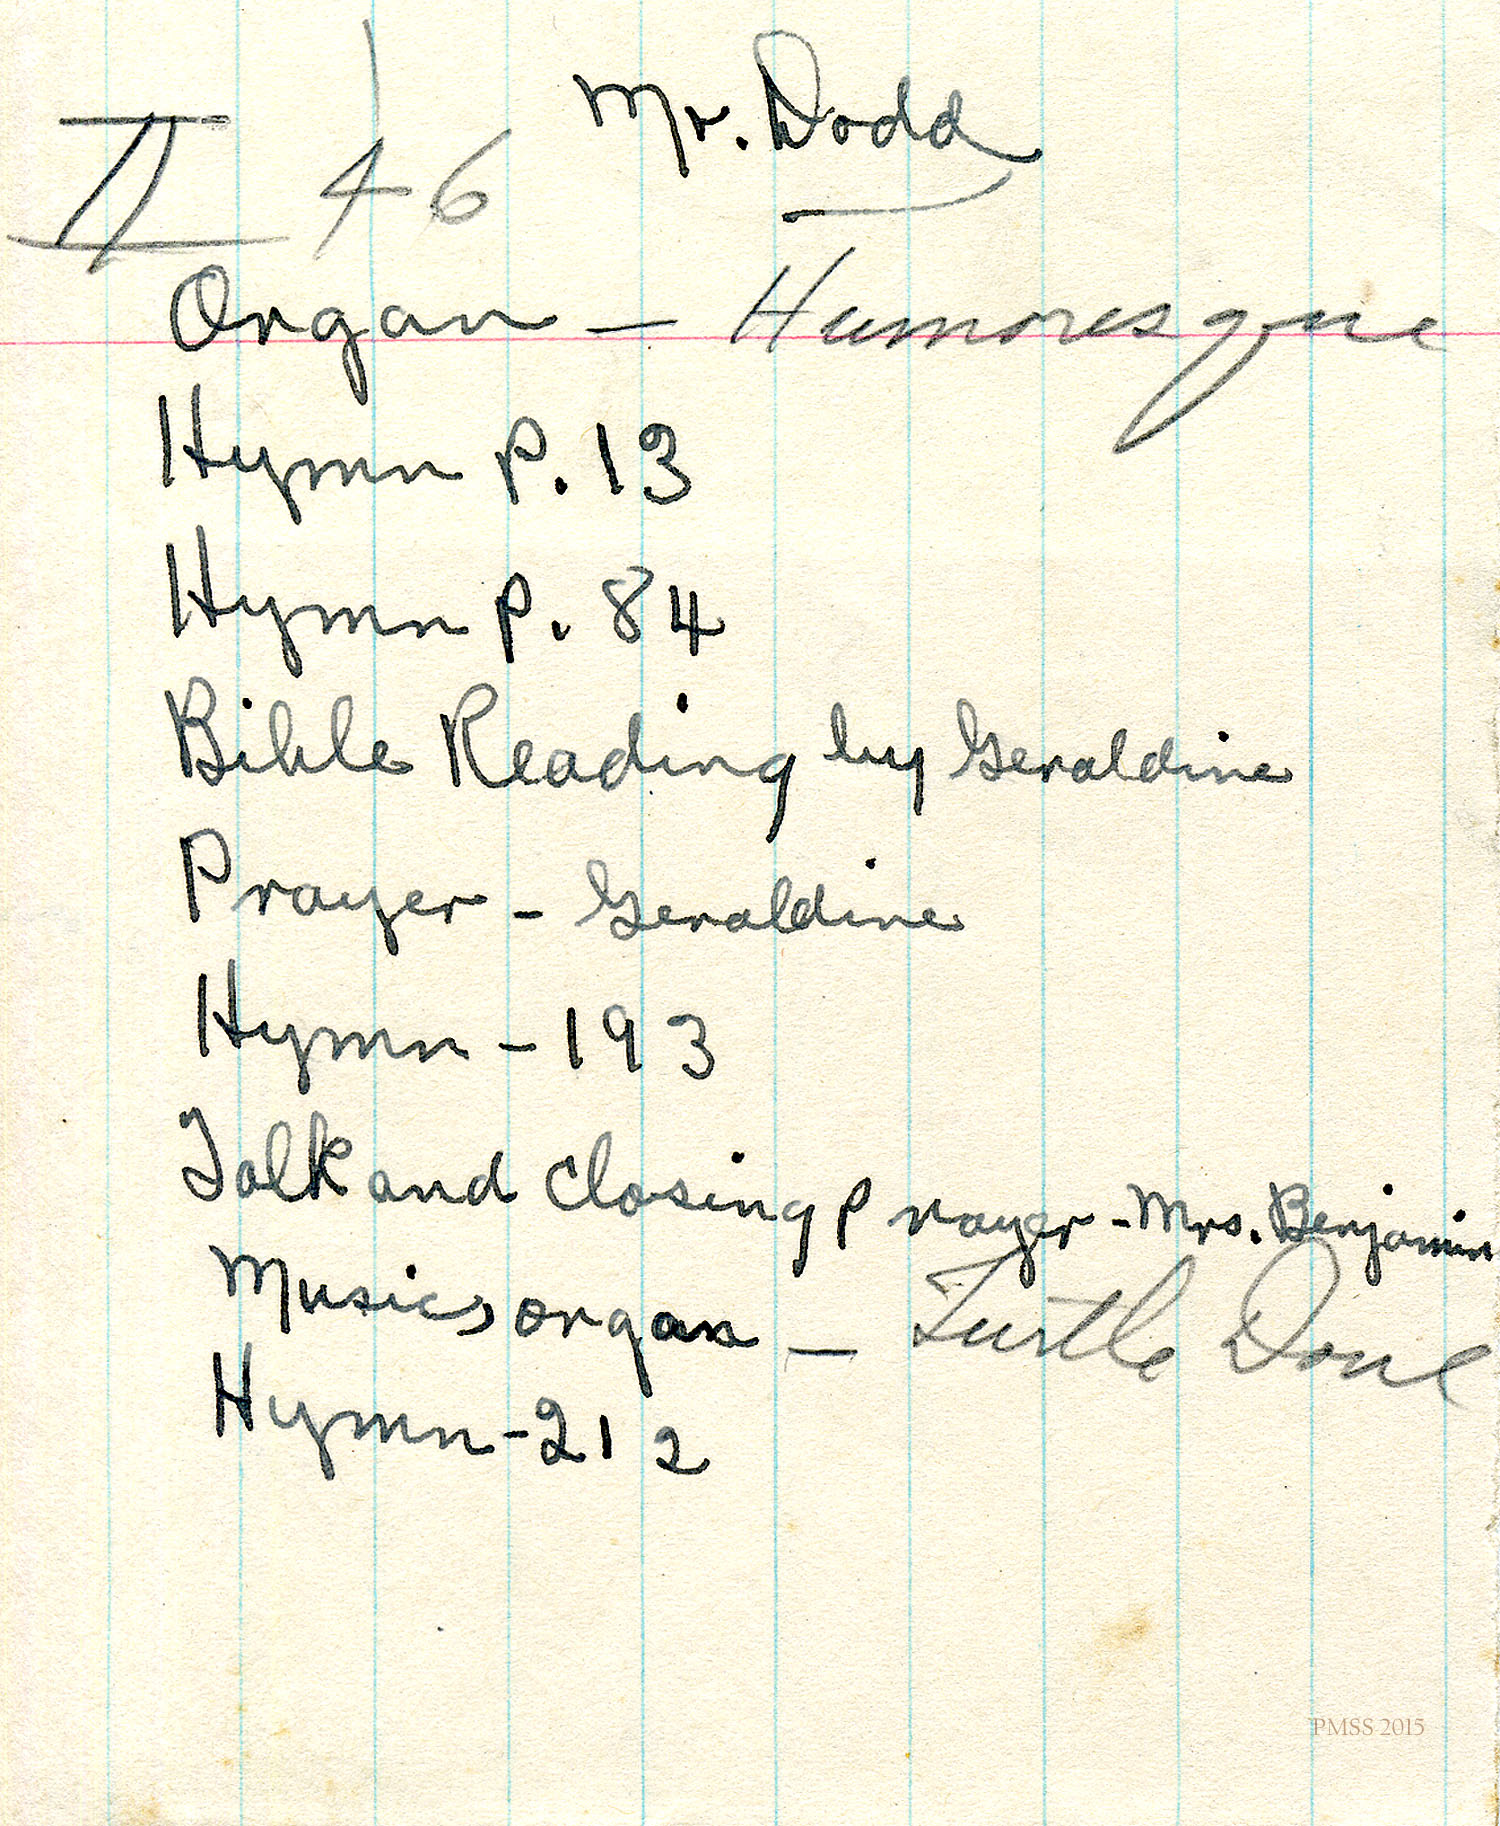 Mr. Dodd
II 46
Organ – Humoresque
Hymn p. 13
Hymn p. 84
Bible Reading by Geraldine
Prayer - Geraldine
Hymn - 193
Talk and Closing Prayer - Mrs. Benjamin
Music, organ – Turtle Dove
Hymn - 212
PMSS 2015